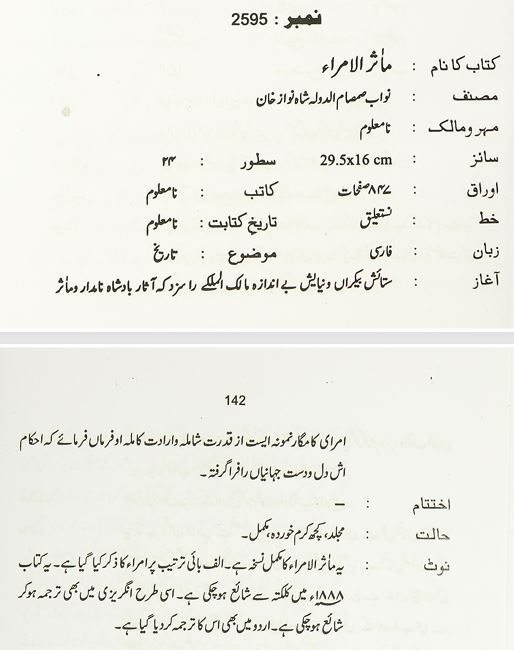 نمبر : 2595
کتاب کا نام : مأثر الامراء
مصنف : نواب صمصام الدولہ شاہ نواز خان
مہر و مالک : نامعلوم
سائز : 29.5x16 cm سطور : ۲۴
اوراق : ۸۴۷ صفحات کاتب : نامعلوم
خط : نستعلیق تاریخ کتابت : نامعلوم
زبان : فارسی موضوع : تاریخ
آغاز : ستائش بیکراں ونیایش بے اندازہ مالک الملکے را سزد کہ آثار بادشاہ نامدار ومأثر
142
امرای کامگار نمونہ ایست از قدرت شاملہ وارادت کاملہ او فرماں فرمائے کہ احکام
اش دل ودست جہانیاں را فرا گرفتہ۔
اختتام : –
حالت : مجلد، کچھ کرم خوردہ، مکمل۔
نوٹ : یہ مأثر الامراء کا مکمل نسخہ ہے۔ الف بائی ترتیب پر امراء کا ذکر کیا گیا ہے۔ یہ کتاب
۱۸۸۸ء میں کلکتہ سے شائع ہوچکی ہے۔ اسی طرح انگریزی میں بھی ترجمہ ہوکر
شائع ہوچکی ہے۔ اردو میں بھی اس کا ترجمہ کردیا گیا ہے۔